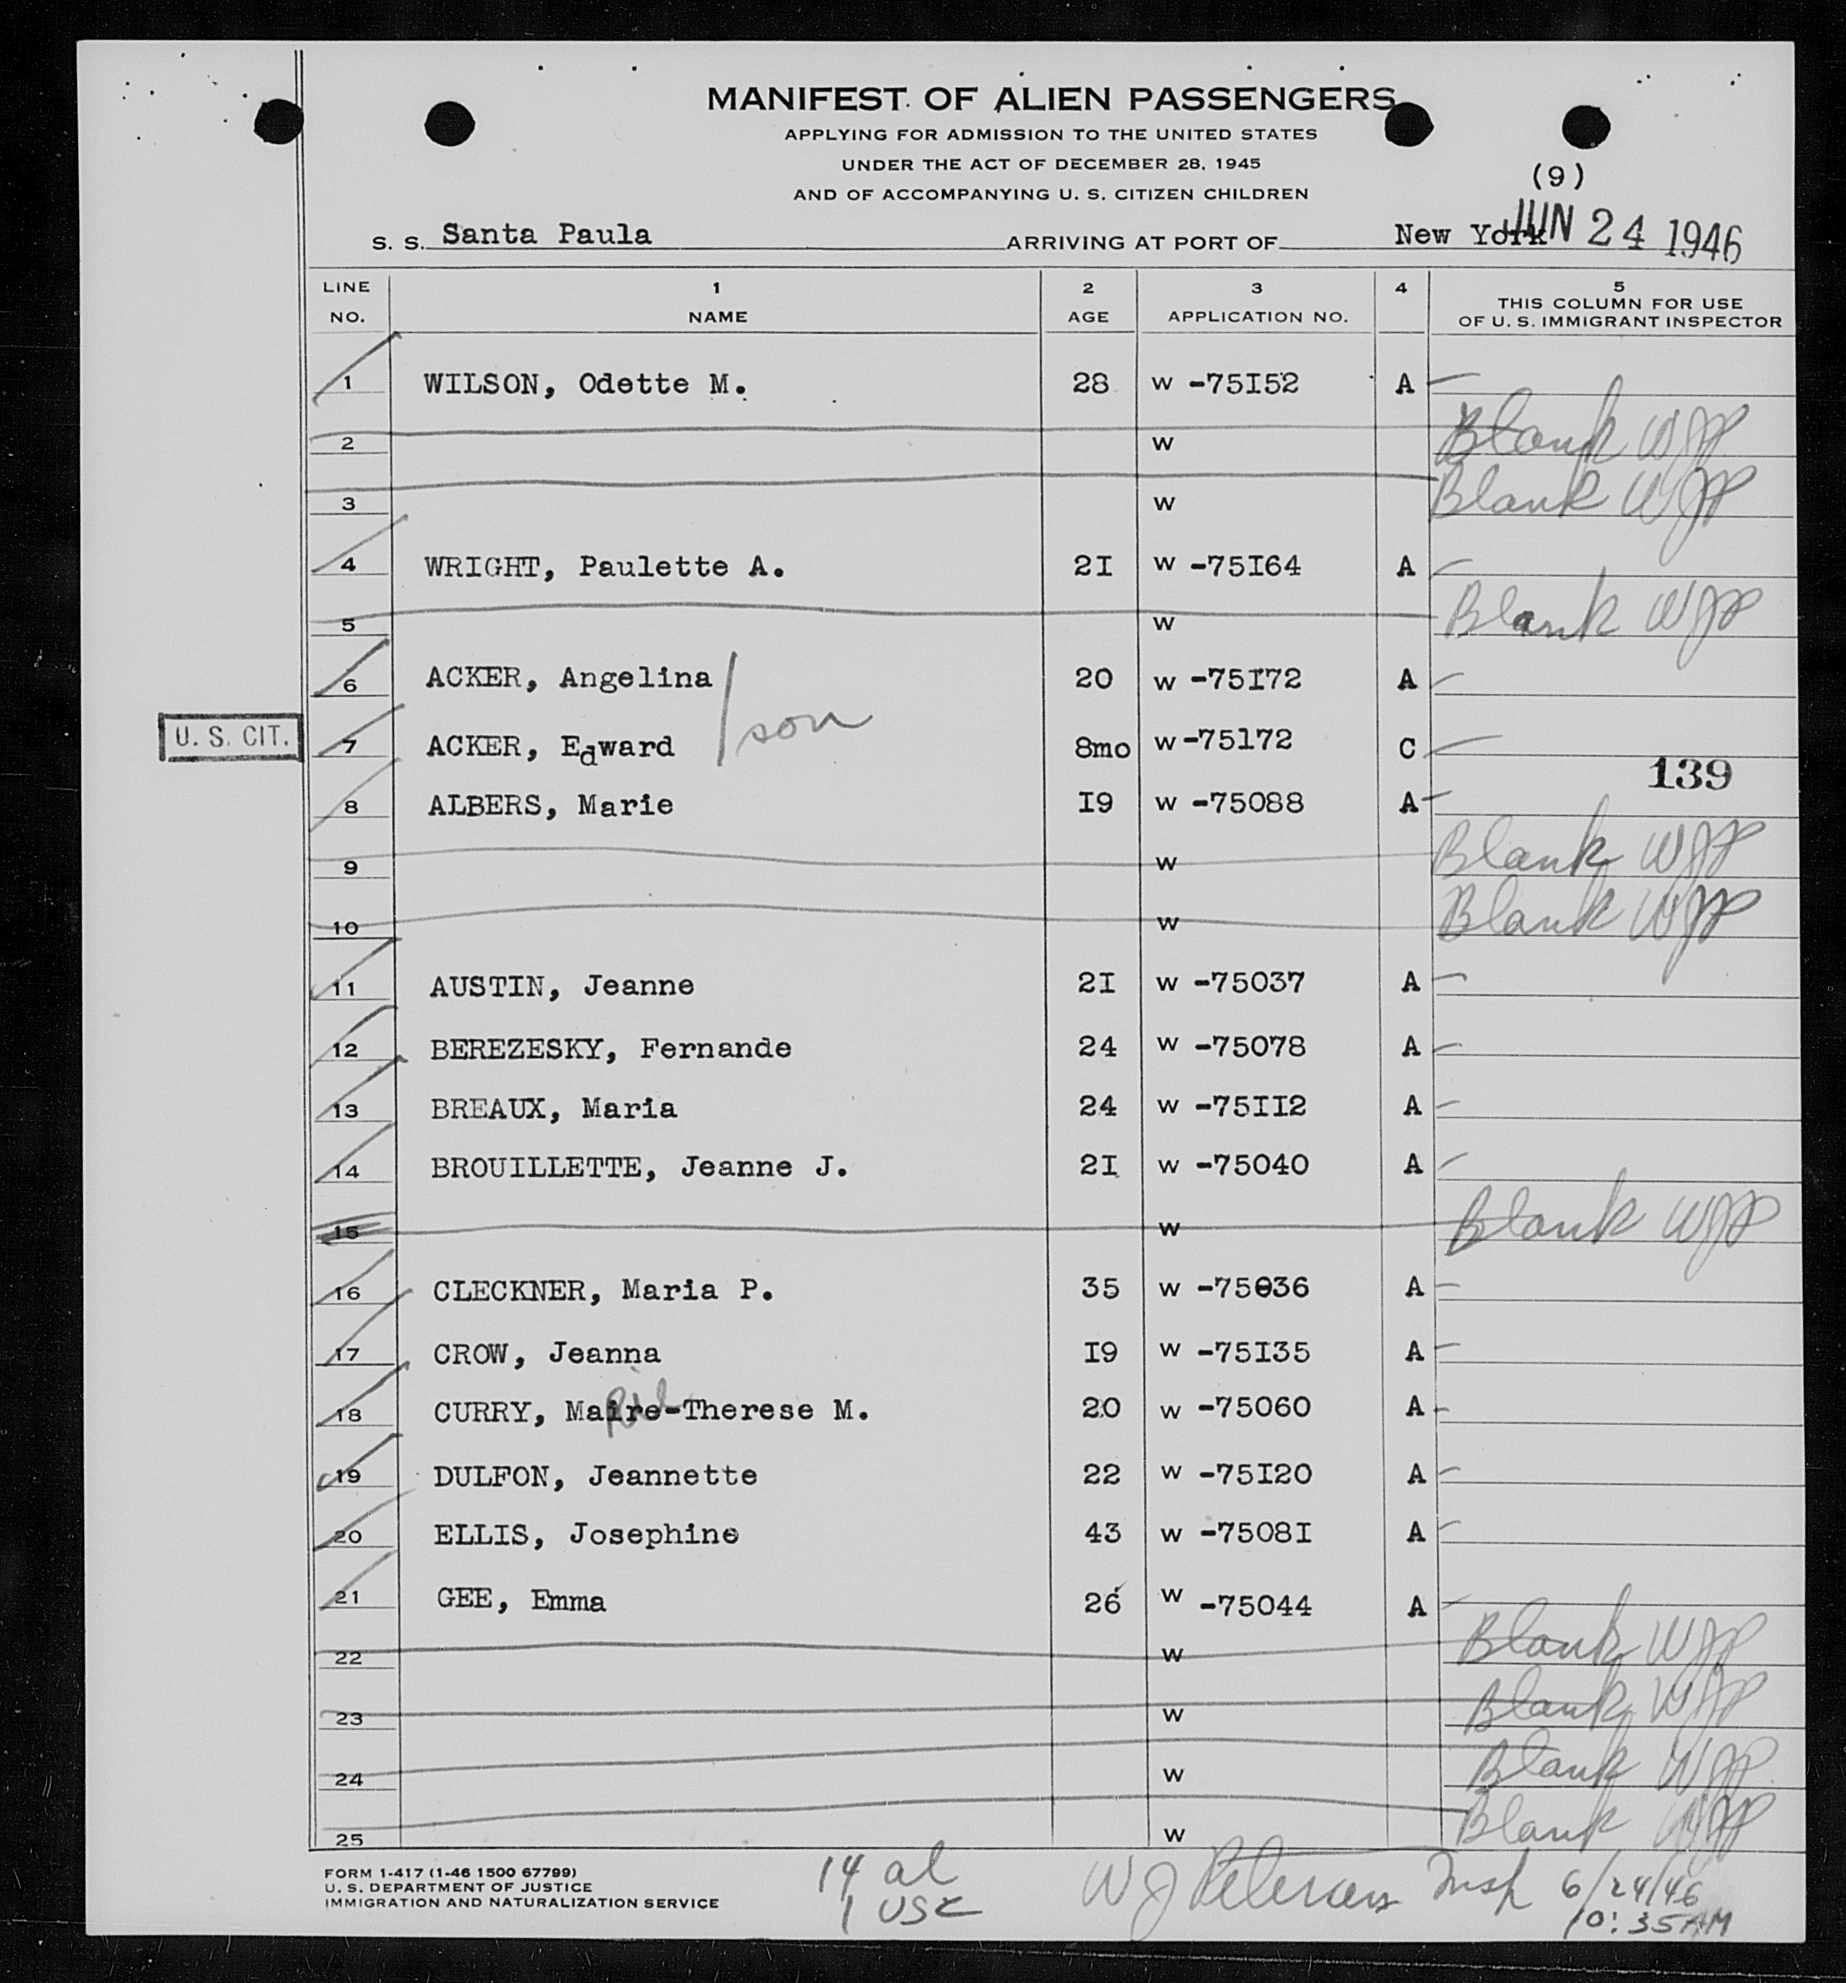 MANIFEST OF ALIEN PASSENGERS
APPLYING FOR ADMISSION TO THE UNITED STATES
UNDER THE ACT OF DECEMBER 28, 1945
AND OF ACCOMPANYING U. S. CITIZEN CHILDREN
(9)
S. S. Santa Paula ARRIVING AT PORT OF New York JUN 24 1946
LINE NO. 1 NAME 2 AGE 3 APPLICATION NO. 4 5 THIS COLUMN FOR USE OF U. S. IMMIGRANT INSPECTOR
1 WILSON, Odette M. 28 W -75I52 A
2 W Blank WJP
3 W Blank WJP
4 WRIGHT, Paulette A. 2I W -75I64 A
5 W Blank WJP
6 ACKER, Angelina 20 W -75I72 A
U. S. CIT. 7 ACKER, Edward son 8mo W -75172 C
139
8 ALBERS, Marie I9 W -75088 A
9 W Blank WJP
10 W Blank WJP
11 AUSTIN, Jeanne 2I W -75037 A
12 BEREZESKY, Fernande 24 W -75078 A
13 BREAUX, Maria 24 W -75II2 A
14 BROUILLETTE, Jeanne J. 2I W -75040 A
15 W Blank WJP
16 CLECKNER, Maria P. 35 W -75036 A
17 CROW, Jeanna I9 W -75I35 A
18 CURRY, Maire-Therese M. 20 W -75060 A
19 DULFON, Jeannette 22 W -75I20 A
20 ELLIS, Josephine 43 W -7508I A
21 GEE, Emma 26 W -75044 A
22 W Blank WJP
23 W Blank WJP
24 W Blank WJP
25 W Blank WJP
FORM 1-417 (1-46 1500 67799)
U. S. DEPARTMENT OF JUSTICE
IMMIGRATION AND NATURALIZATION SERVICE
14 al
1 USC
W J Petersen Insp 6/24/46
10:35 AM